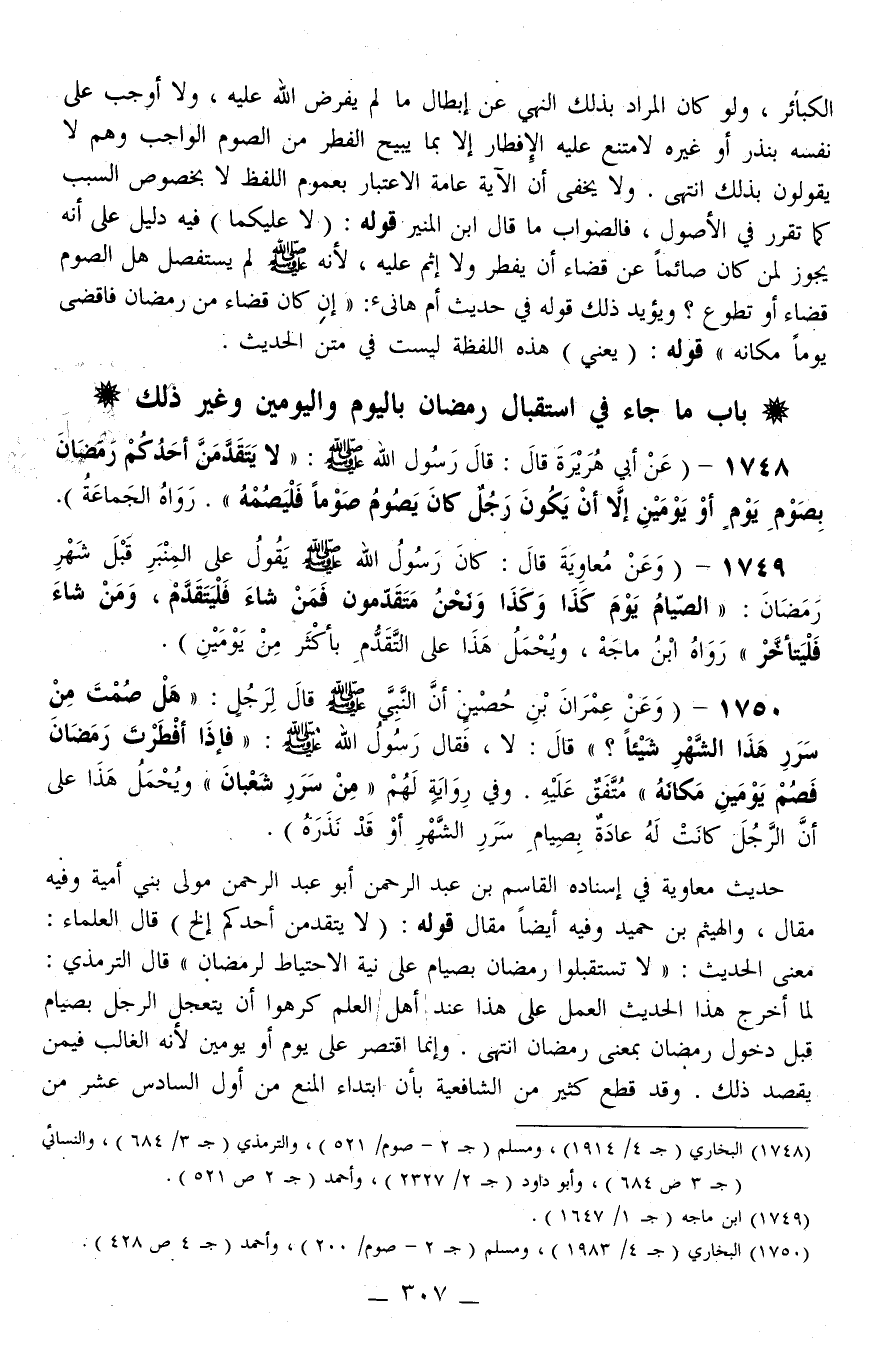 الكبائر ، ولو كان المراد بذلك النهي عن إبطال ما لم يفرض الله عليه ، ولا أوجب على
نفسه بنذر أو غيره لامتنع عليه الإفطار إلا بما يبيح الفطر من الصوم الواجب وهم لا
يقولون بذلك انتهى . ولا يخفى أن الآية عامة الاعتبار بعموم اللفظ لا بخصوص السبب
كما تقرر في الأصول ، فالصواب ما قال ابن المنير قوله : ( لا عليكما ) فيه دليل على أنه
يجوز لمن كان صائماً عن قضاء أن يفطر ولا إثم عليه ، لأنه ﷺ لم يستفصل هل الصوم
قضاء أو تطوع ؟ ويؤيد ذلك قوله في حديث أم هانىء: « إن كان قضاء من رمضان فاقضى
يوماً مكانه » قوله : ( يعني ) هذه اللفظة ليست في متن الحديث .
✵ باب ما جاء في استقبال رمضان باليوم واليومين وغير ذلك ✵
١٧٤٨ - ( عَنْ أبي هُرَيْرَةَ قالَ : قالَ رَسُول الله ﷺ : « لا يَتَقَدَّمَنَّ أحَدُكُمْ رَمَضَانَ
بِصَوْمِ يَوْمٍ أوْ يَوْمَيْنِ إلَّا أنْ يَكُونَ رَجُلٌ كانَ يَصُومُ صَوْماً فَلْيَصُمْهُ » . رَوَاهُ الجَماعَةُ ).
١٧٤٩ - ( وَعَنْ مُعاوِيَةَ قالَ : كانَ رَسُولُ الله ﷺ يَقُولُ على المِنْبَرِ قَبْلَ شَهْرِ
رَمَضَانَ : « الصّيامُ يَوْمَ كَذَا وَكَذَا وَنَحْنُ مُتَقَدّمون فَمَنْ شاءَ فَلْيَتَقَدَّمْ ، وَمَنْ شاءَ
فَلْيَتأخَّرْ » رَوَاهُ ابْنُ ماجَهْ ، ويُحْمَلُ هَذَا على التَّقَدُّمِ بأكْثَر مِنْ يَوْمَيْنِ ) .
١٧٥٠ - ( وَعَنْ عِمْرَانَ بْنِ حُصْيْنٍ أنَّ النَّبِيَّ ﷺ قالَ لِرَجُلٍ : « هَلْ صُمْتَ مِنْ
سَرَرِ هَذَا الشَّهْرِ شَيْئاً ؟ » قالَ : لا ، فَقال رَسُولُ الله ﷺ : « فإذَا أفْطَرْتَ رَمَضَانَ
فَصُمْ يَوْمَينِ مَكانَهُ » مُتَّفَقٌ عَلَيْهِ . وفي رِوايَةٍ لَهُمْ « مِنْ سَرَرِ شَعْبانَ » ويُحْمَلُ هَذَا على
أنَّ الرَّجُلَ كانَتْ لَهُ عادَةٌ بِصِيامِ سَرَرِ الشَّهْرِ أوْ قَدْ نَذَرَهُ ) .
حديث معاوية في إسناده القاسم بن عبد الرحمن أبو عبد الرحمن مولى بني أمية وفيه
مقال ، والهيثم بن حميد وفيه أيضاً مقال قوله : ( لا يتقدمن أحدكم إلخ ) قال العلماء :
معنى الحديث : « لا تستقبلوا رمضان بصيام على نية الاحتياط لرمضان » قال الترمذي :
لما أخرج هذا الحديث العمل على هذا عند أهل العلم كرهوا أن يتعجل الرجل بصيام
قبل دخول رمضان بمعنى رمضان انتهى . وإنما اقتصر على يوم أو يومين لأنه الغالب فيمن
يقصد ذلك . وقد قطع كثير من الشافعية بأن ابتداء المنع من أول السادس عشر من
(١٧٤٨) البخاري ( جـ ٤/ ١٩١٤) ، ومسلم ( جـ ٢ - صوم/ ٥٢١ ) ، والترمذي ( جـ ٣/ ٦٨٤ ) ، والنسائي
( جـ ٣ ص ٦٨٤ ) ، وأبو داود ( جـ ٢/ ٢٣٢٧ ) ، وأحمد ( جـ ٢ ص ٥٢١ ) .
(١٧٤٩) ابن ماجه ( جـ ١/ ١٦٤٧ ) .
(١٧٥٠) البخاري ( جـ ٤/ ١٩٨٣ ) ، ومسلم ( جـ ٢ - صوم/ ٢٠٠ ) ، وأحمد ( جـ ٤ ص ٤٢٨ ) .
_ ٣٠٧ _